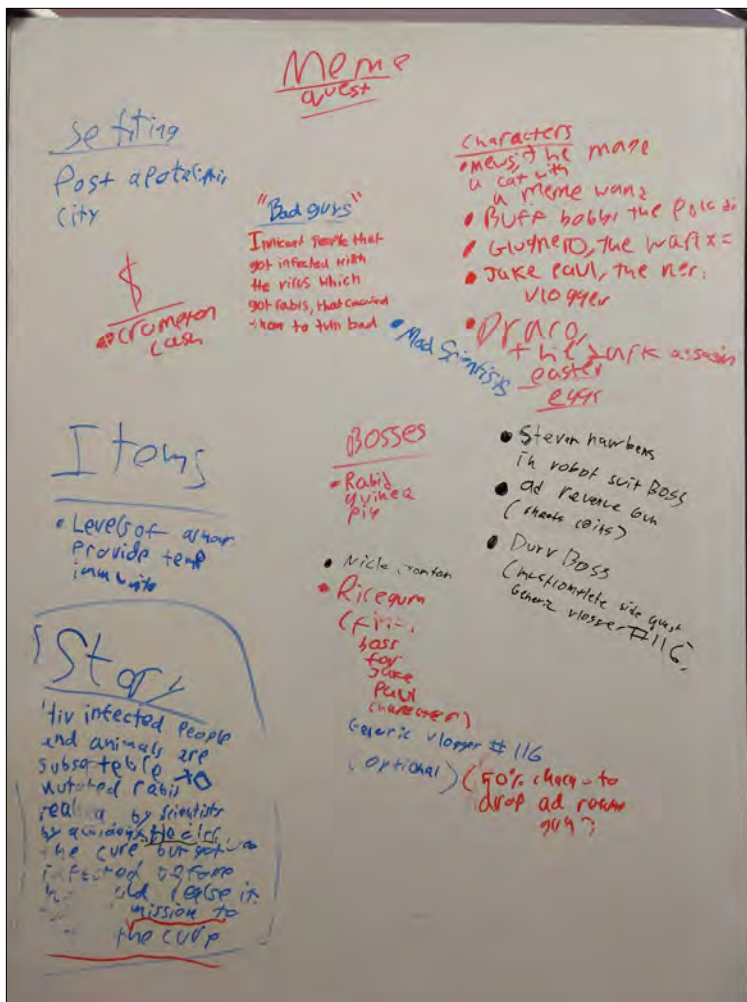 Meme
quest
setting
Post apotaliptic
city
$
crompton
cash
"Bad guys"
Innicent people that
got infected with
the virus which
got rabis, that caused
them to turn bad
• Mad Scientists
Characters
• mews, the mage
a cat with
a meme wand
• Buff bobbi the
the
• Jake Paul, the
vlogger
• Draco,
the dark assasin
easter
eggs
Items
• Levels of armour
provide temp
Bosses
• Rabid
guinea
pig
• Nick crompton
• Ricegum
boss
for
Jake
Paul
character)
Generic vlogger #116
(optional) (50% chance to
drop ad revenue
gun)
• Steven
in robot suit Boss
• ad revenue Gun
(shoots coins)
• Durv Boss
(must complete side quest
Generic vlogger #116
Story
Hiv infected people
and animals are
to
mutated rabis
by scientists
by
the cure but got
infected before
it
mission to
the cure